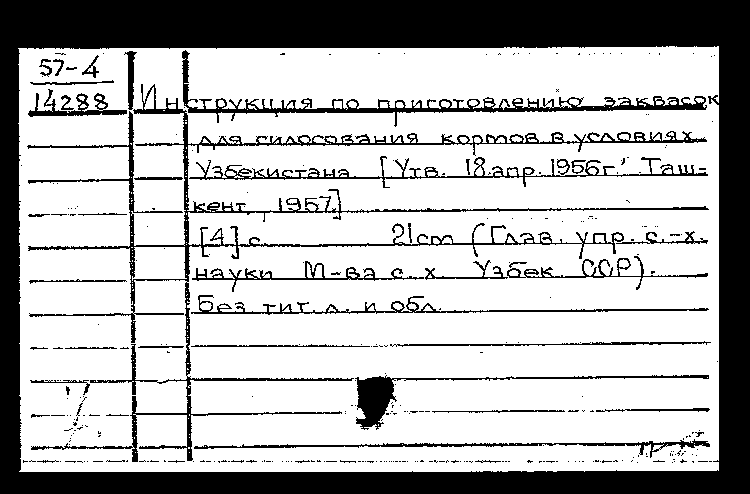 57-4
14288 Инструкция по приготовлению заквасок
для силосования кормов в условиях
Узбекистана. [Утв. 18 апр. 1956г. Таш-
кент, 1957.]
[4] с. 21cm (Глав. упр. с.-х.
науки М-ва с. х Узбек ССР).
Без тит. л. и обл.